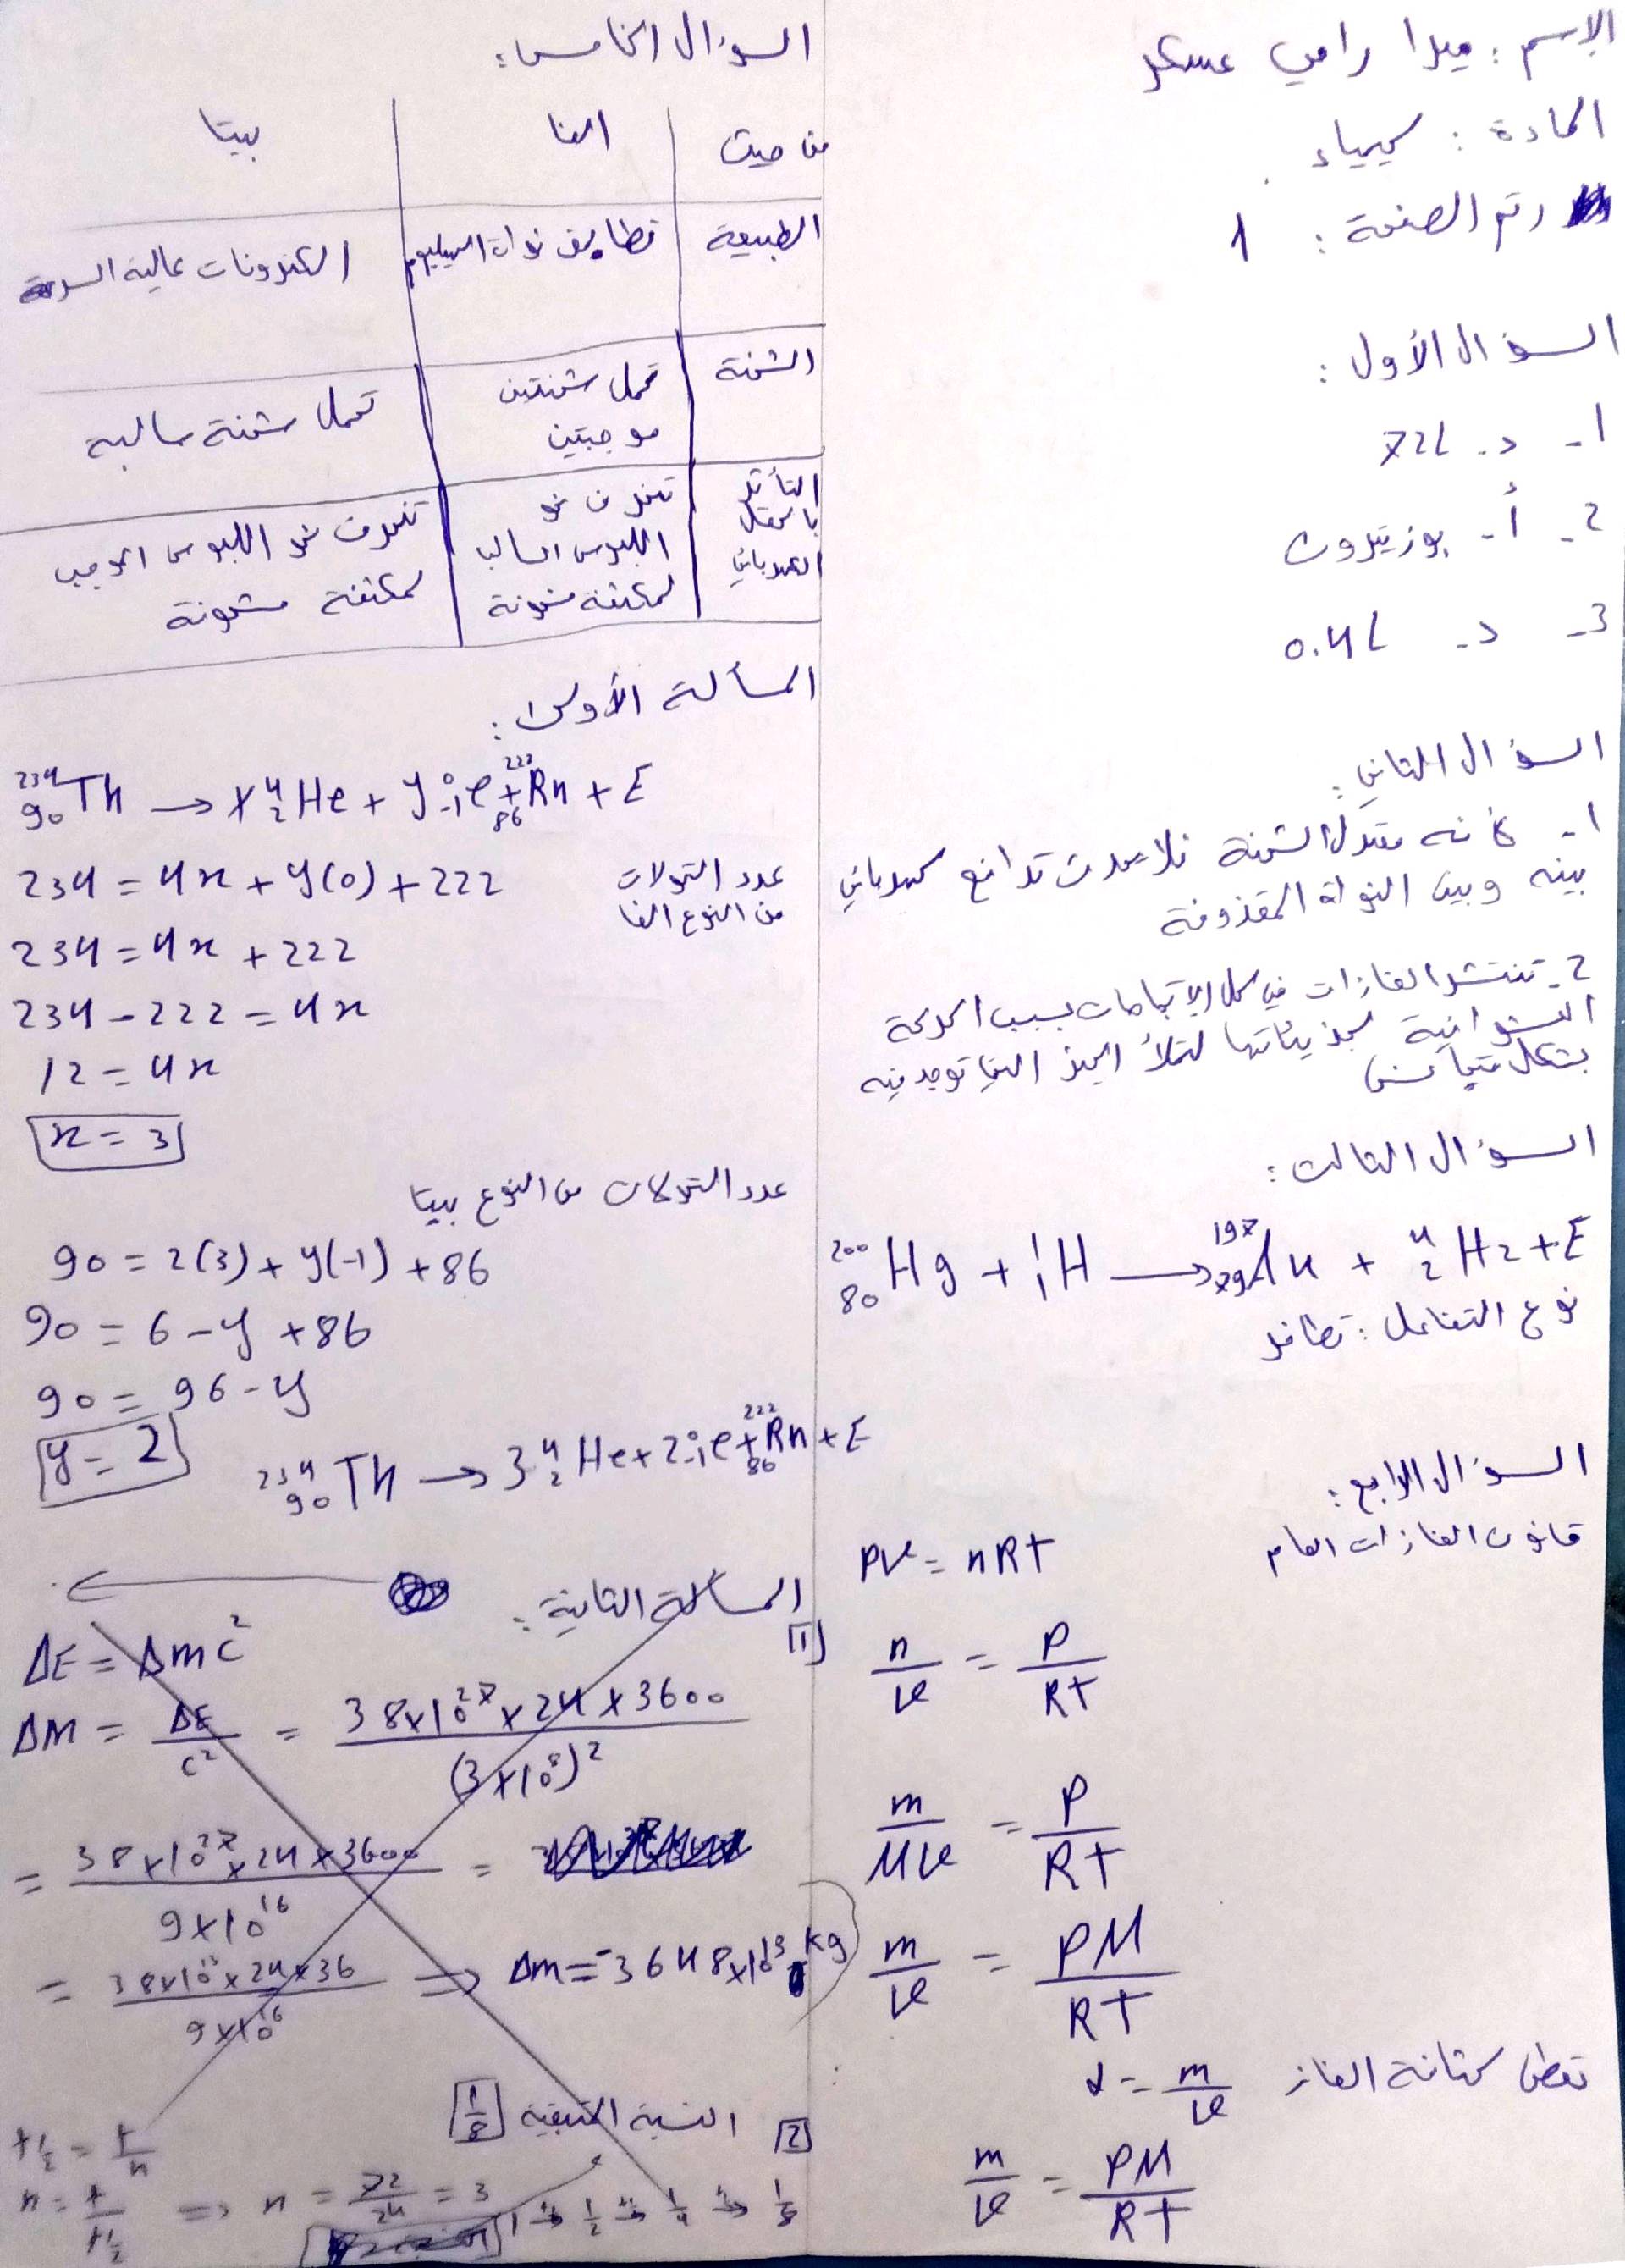 الإسم : ميرا رامي عسكر
المادة : كيمياء
رقم الصفحة : 1
السؤال الأول :
1- د. 72L
2- أ- بوزيترون
3- د- 0.4L
السؤال الثاني :
1- كانه معتدل الشحنة فلا يحدث تدافع كهربائي
بينه وبين النواة المقذوفة
2- تنتشر الغازات في كل الاتجاهات بسبب الحركة
العشوائية لجزيئاتها لتملأ الحيز التي توجد فيه
بشكل متجانس
السؤال الثالث :
²⁰⁰₈₀Hg + ¹₁H → ¹⁹⁷₇₉Au + ⁴₂He + E
نوع التفاعل : تطافر
السؤال الرابع :
قانون الغازات العام PV = nRT
n/V = P/RT
m/MV = P/RT
m/V = PM/RT
تعطى كثافة الغاز d = m/V
m/V = PM/RT
السؤال الخامس :
من حيث | ألفا | بيتا
الطبيعة | تطابق نواة الهيليوم | الكترونات عالية السرعة
الشحنة | تحمل شحنتين موجبتين | تحمل شحنة سالبة
التأثر بالحقل الكهربائي | تنحرف نحو اللبوس السالب لمكثفة مشحونة | تنحرف نحو اللبوس الموجب لمكثفة مشحونة
المسألة الأولى :
²³⁴₉₀Th → x ⁴₂He + y ⁰₋₁e + ²²²₈₆Rn + E
عدد التحولات من النوع ألفا
234 = 4x + y(0) + 222
234 = 4x + 222
234 - 222 = 4x
12 = 4x
x = 3
عدد التحولات من النوع بيتا
90 = 2(3) + y(-1) + 86
90 = 6 - y + 86
90 = 96 - y
y = 2
²³⁴₉₀Th → 3 ⁴₂He + 2 ⁰₋₁e + ²²²₈₆Rn + E
المسألة الثانية :
[1]
ΔE = Δmc²
Δm = ΔE/c² = 38×10²⁷×24×3600/(3×10⁸)²
= 38×10²⁷×24×3600/9×10¹⁶ =
= 38×10¹³×24×36/9×10¹⁶ ⇒ Δm = -3648×10¹³ kg
[2] النسبة المتبقية 1/8
t½ = t/n
n = t/t½ ⇒ n = 72/24 = 3
1 → 1/2 → 1/4 → 1/8